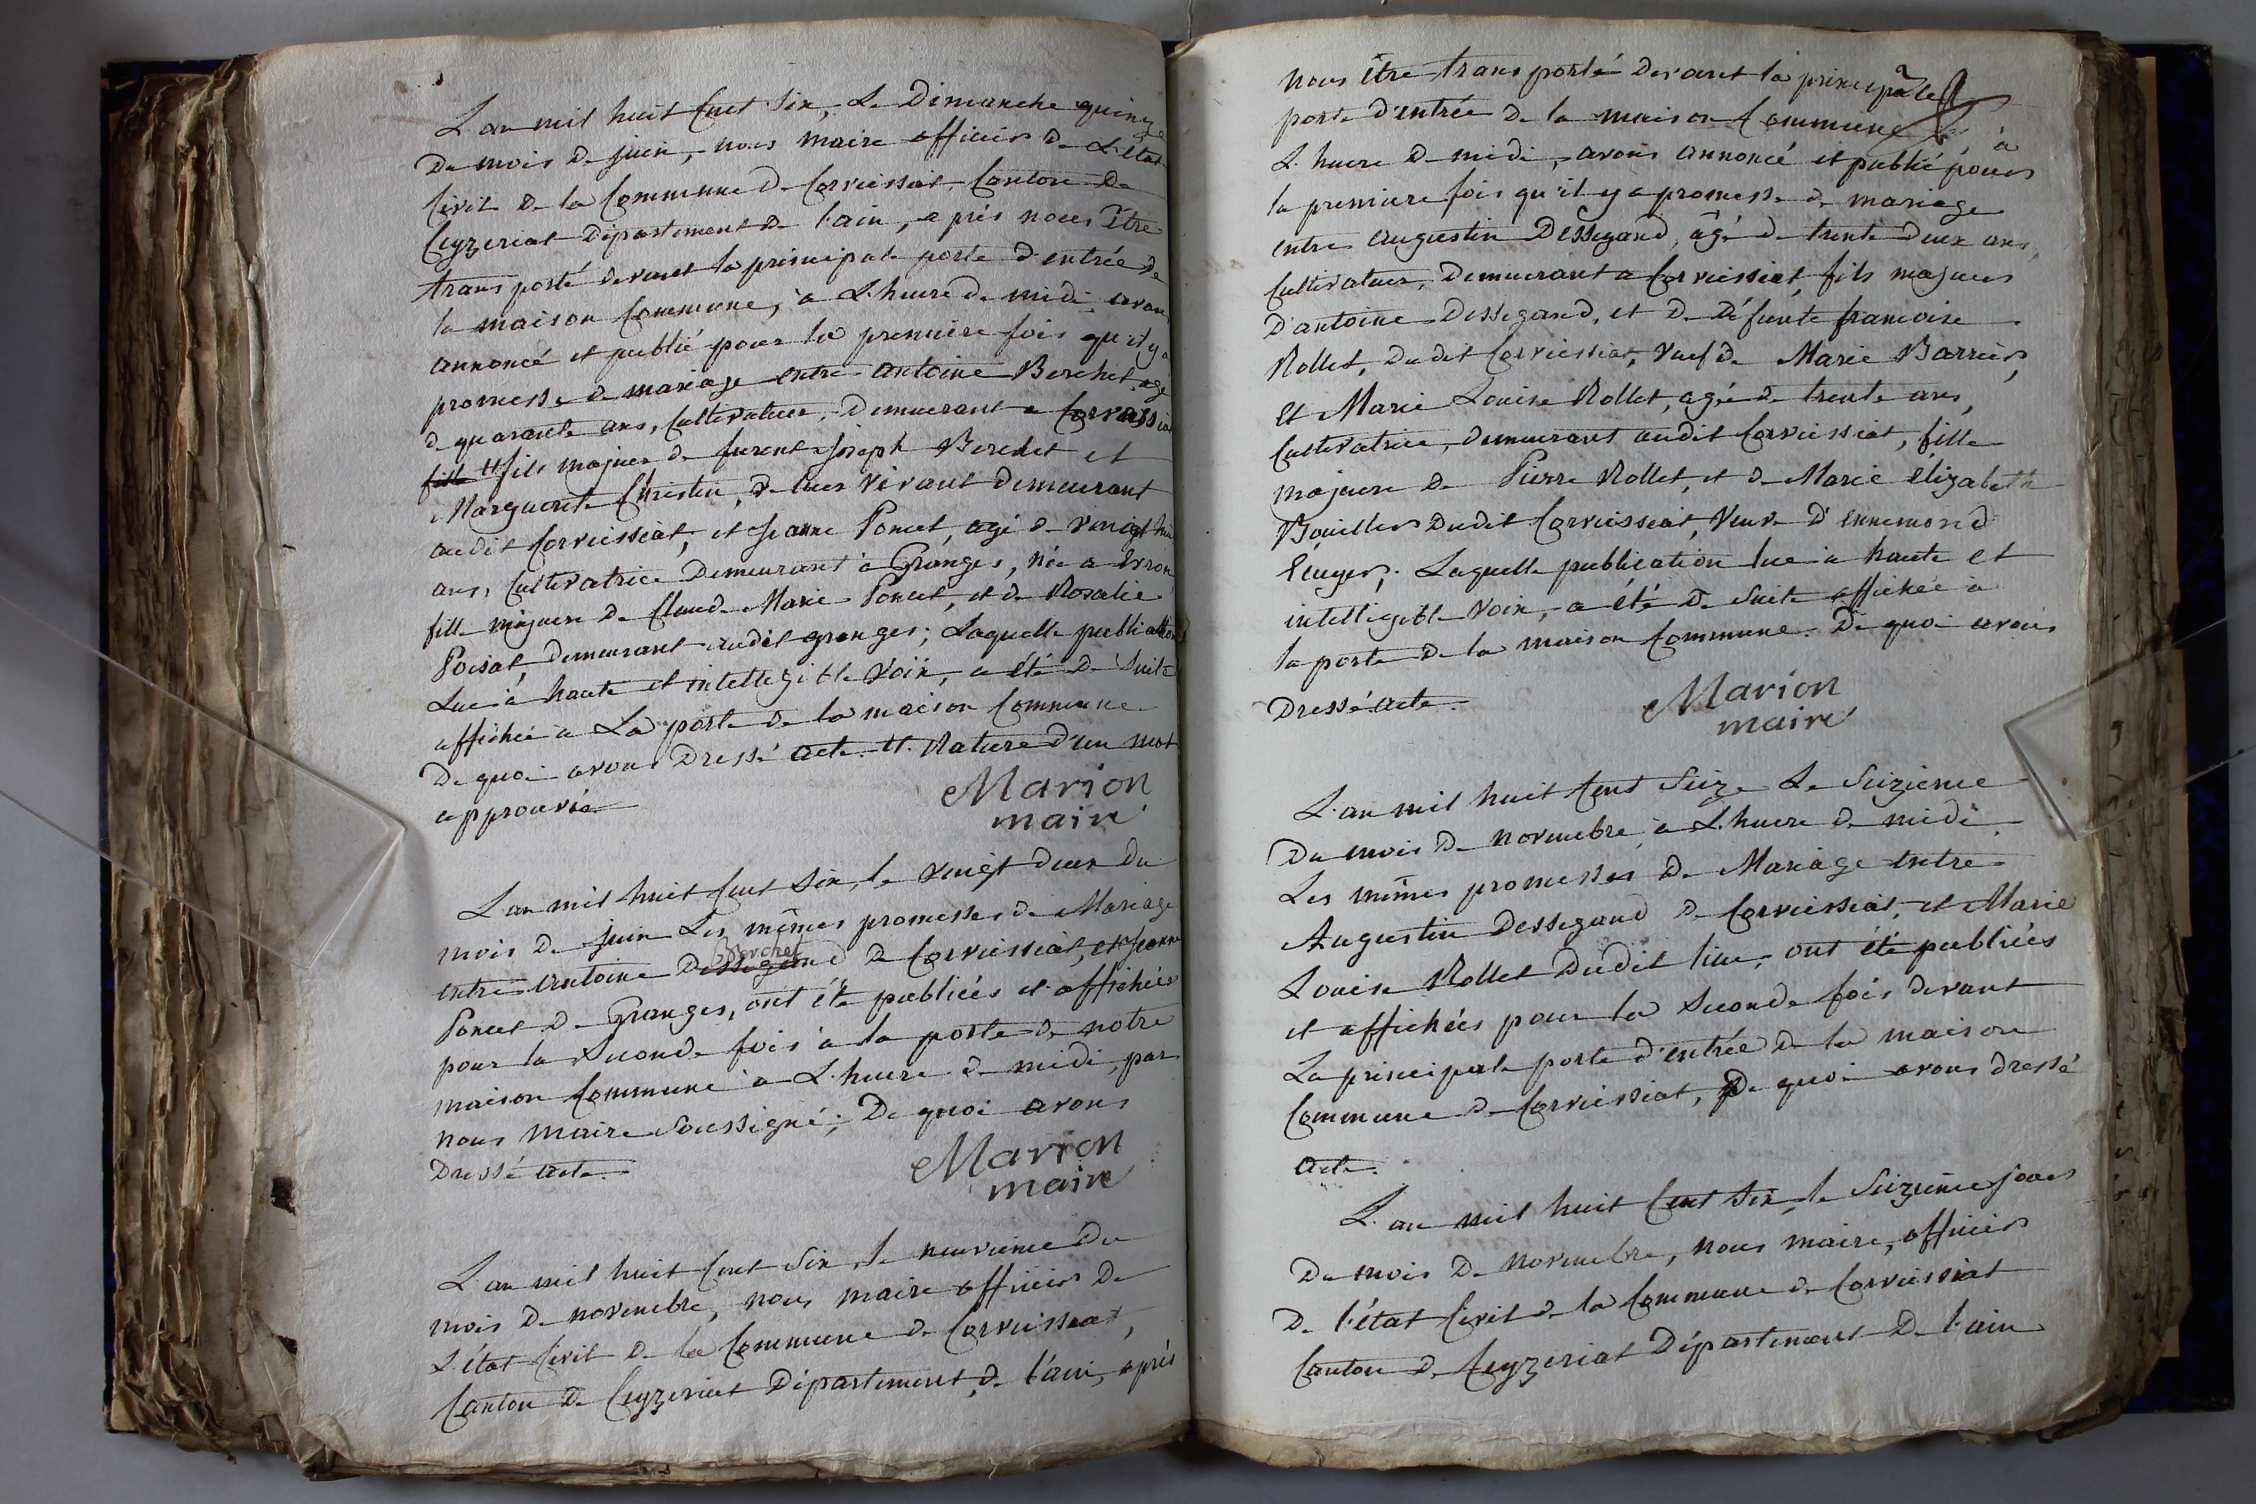 L'an mil huit Cent Six, Le Dimanche quinze
Du mois De juin, nous maire officier De L'état
Civil De la Commune De Corveissiat Canton De
Ceyzeriat Département De l'ain, après nous être
transporté devant la principale porte d'entrée De
la maison Commune, à L'heure De midi avons
annoncé et publié pour la première fois qu'il y a
promesse De mariage entre antoine Berchet, agé
De quarante ans, Cultivateur, Demeurant a Corveissiat
fille # fils majeur De furent Joseph Berchet et
Marguerite Chrestin, De leur vivant Demeurant
audit Corveissiat, et Jeanne Poncet, agé De vingt huit
ans, Cultivatrice Demeurant à Granges, née a
fille majeure De Claude Marie Poncet, et De Rosalie
Poisat, demeurant audit granges; Laquelle publication
Lue à haute et intellegible Voix, a été De Suite
affichée à La porte De la maison Commune
De quoi avons Dressé acte. #. Rature d'un mot
approuvée
Marion
maire
L'an mil huit Cent Six, le vingt deux du
mois De juin Les mêmes promesses De Mariage
Berchet
entre antoine Dessegand De Corveissiat, et Jeanne
Poncet De Granges, ont été publiées et affichées
pour la Seconde fois à la porte De notre
maison Commune à L'heure De midi, par
nous Maire Soussigné; De quoi avons
Dressé acte.
Marion
maire
L'an mil huit Cent Six, le neuvieme Du
mois De novembre, nous maire officier De
L'état Civil De la Commune De Corveissiat,
Canton De Ceyzeriat Département De l'ain, après
nous être transporté Devant la principale
porte d'entrée De la maison Commune à
L'heure De midi, avons annoncé et publié pour
la premiere fois qu'il y a promesse De mariage
entre augustin Dessegand, âgé De trente Deux ans,
Cultivateur, Demeurant a Corveissiat, fils majeur
D'antoine Dessegand, et De Défunte francoise
Rollet, Dudit Corveissiat, Veuf De Marie Barrier,
et Marie Louise Rollet, agée De trente ans,
Cultivatrice, demeurant audit Corveissiat, fille
majeure De Pierre Rollet, et De Marie élizabeth
Bouiller Dudit Corveissiat, Veuve D'Ennemond
Laquelle publication lue à haute et
intelligible Voix, a été De Suite affichée à
la porte De la maison Commune. De quoi avons
Dressé acte.
Marion
maire
L'an mil huit Cent Seize Le Seizieme
Du mois De novembre, à L'heure De midi
Les mêmes promesses De Mariage entre
Augustin Dessegand De Corveissiat, et Marie
Louise Rollet Dudit lieu, ont été publiées
et affichées pour la Seconde fois devant
La principale porte d'entrée De la maison
Commune De Corveissiat, De quoi avons dressé
acte.
L'an mil huit Cent Six, le Seizieme jour
Du mois De Novembre, nous maire, officier
De l'état Civil De la Commune De Corveissiat
Canton De Ceyzeriat Département De l'ain